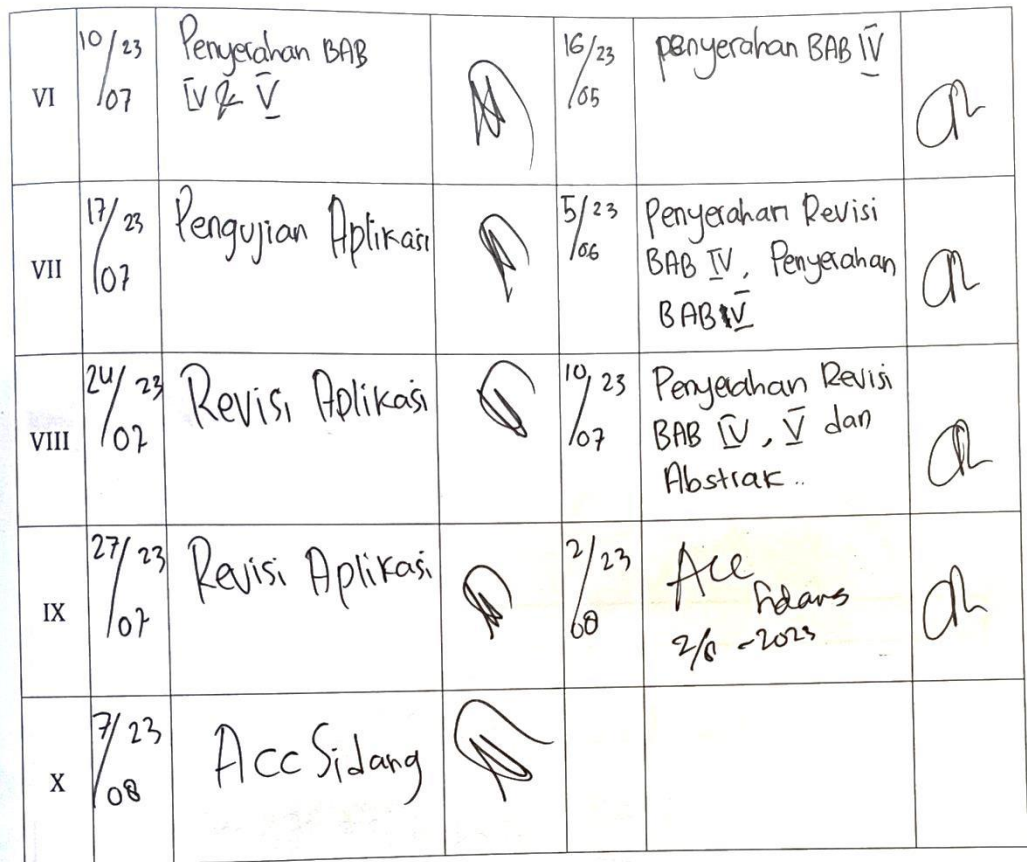 VI
10/23
/07
Penyerahan BAB
IV & V
16/23
/05
penyerahan BAB IV
VII
17/23
/07
Pengujian Aplikasi
5/23
/06
Penyerahan Revisi
BAB IV, Penyerahan
BAB V
VIII
24/23
/07
Revisi Aplikasi
10/23
/07
Penyerahan Revisi
BAB IV, V dan
Abstrak..
IX
27/23
/07
Revisi Aplikasi
2/23
/08
Acc
Sidang
2/8 -2023
X
7/23
/08
Acc Sidang